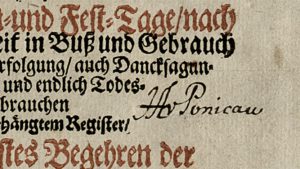 n-und Fest-Tage/nach
eit in Buß und Gebrauch
erfolgung/auch Dancksagun-
und endlich Todes-
ebrauchen
hängtem Register/
stes Begehren der
Ponicau